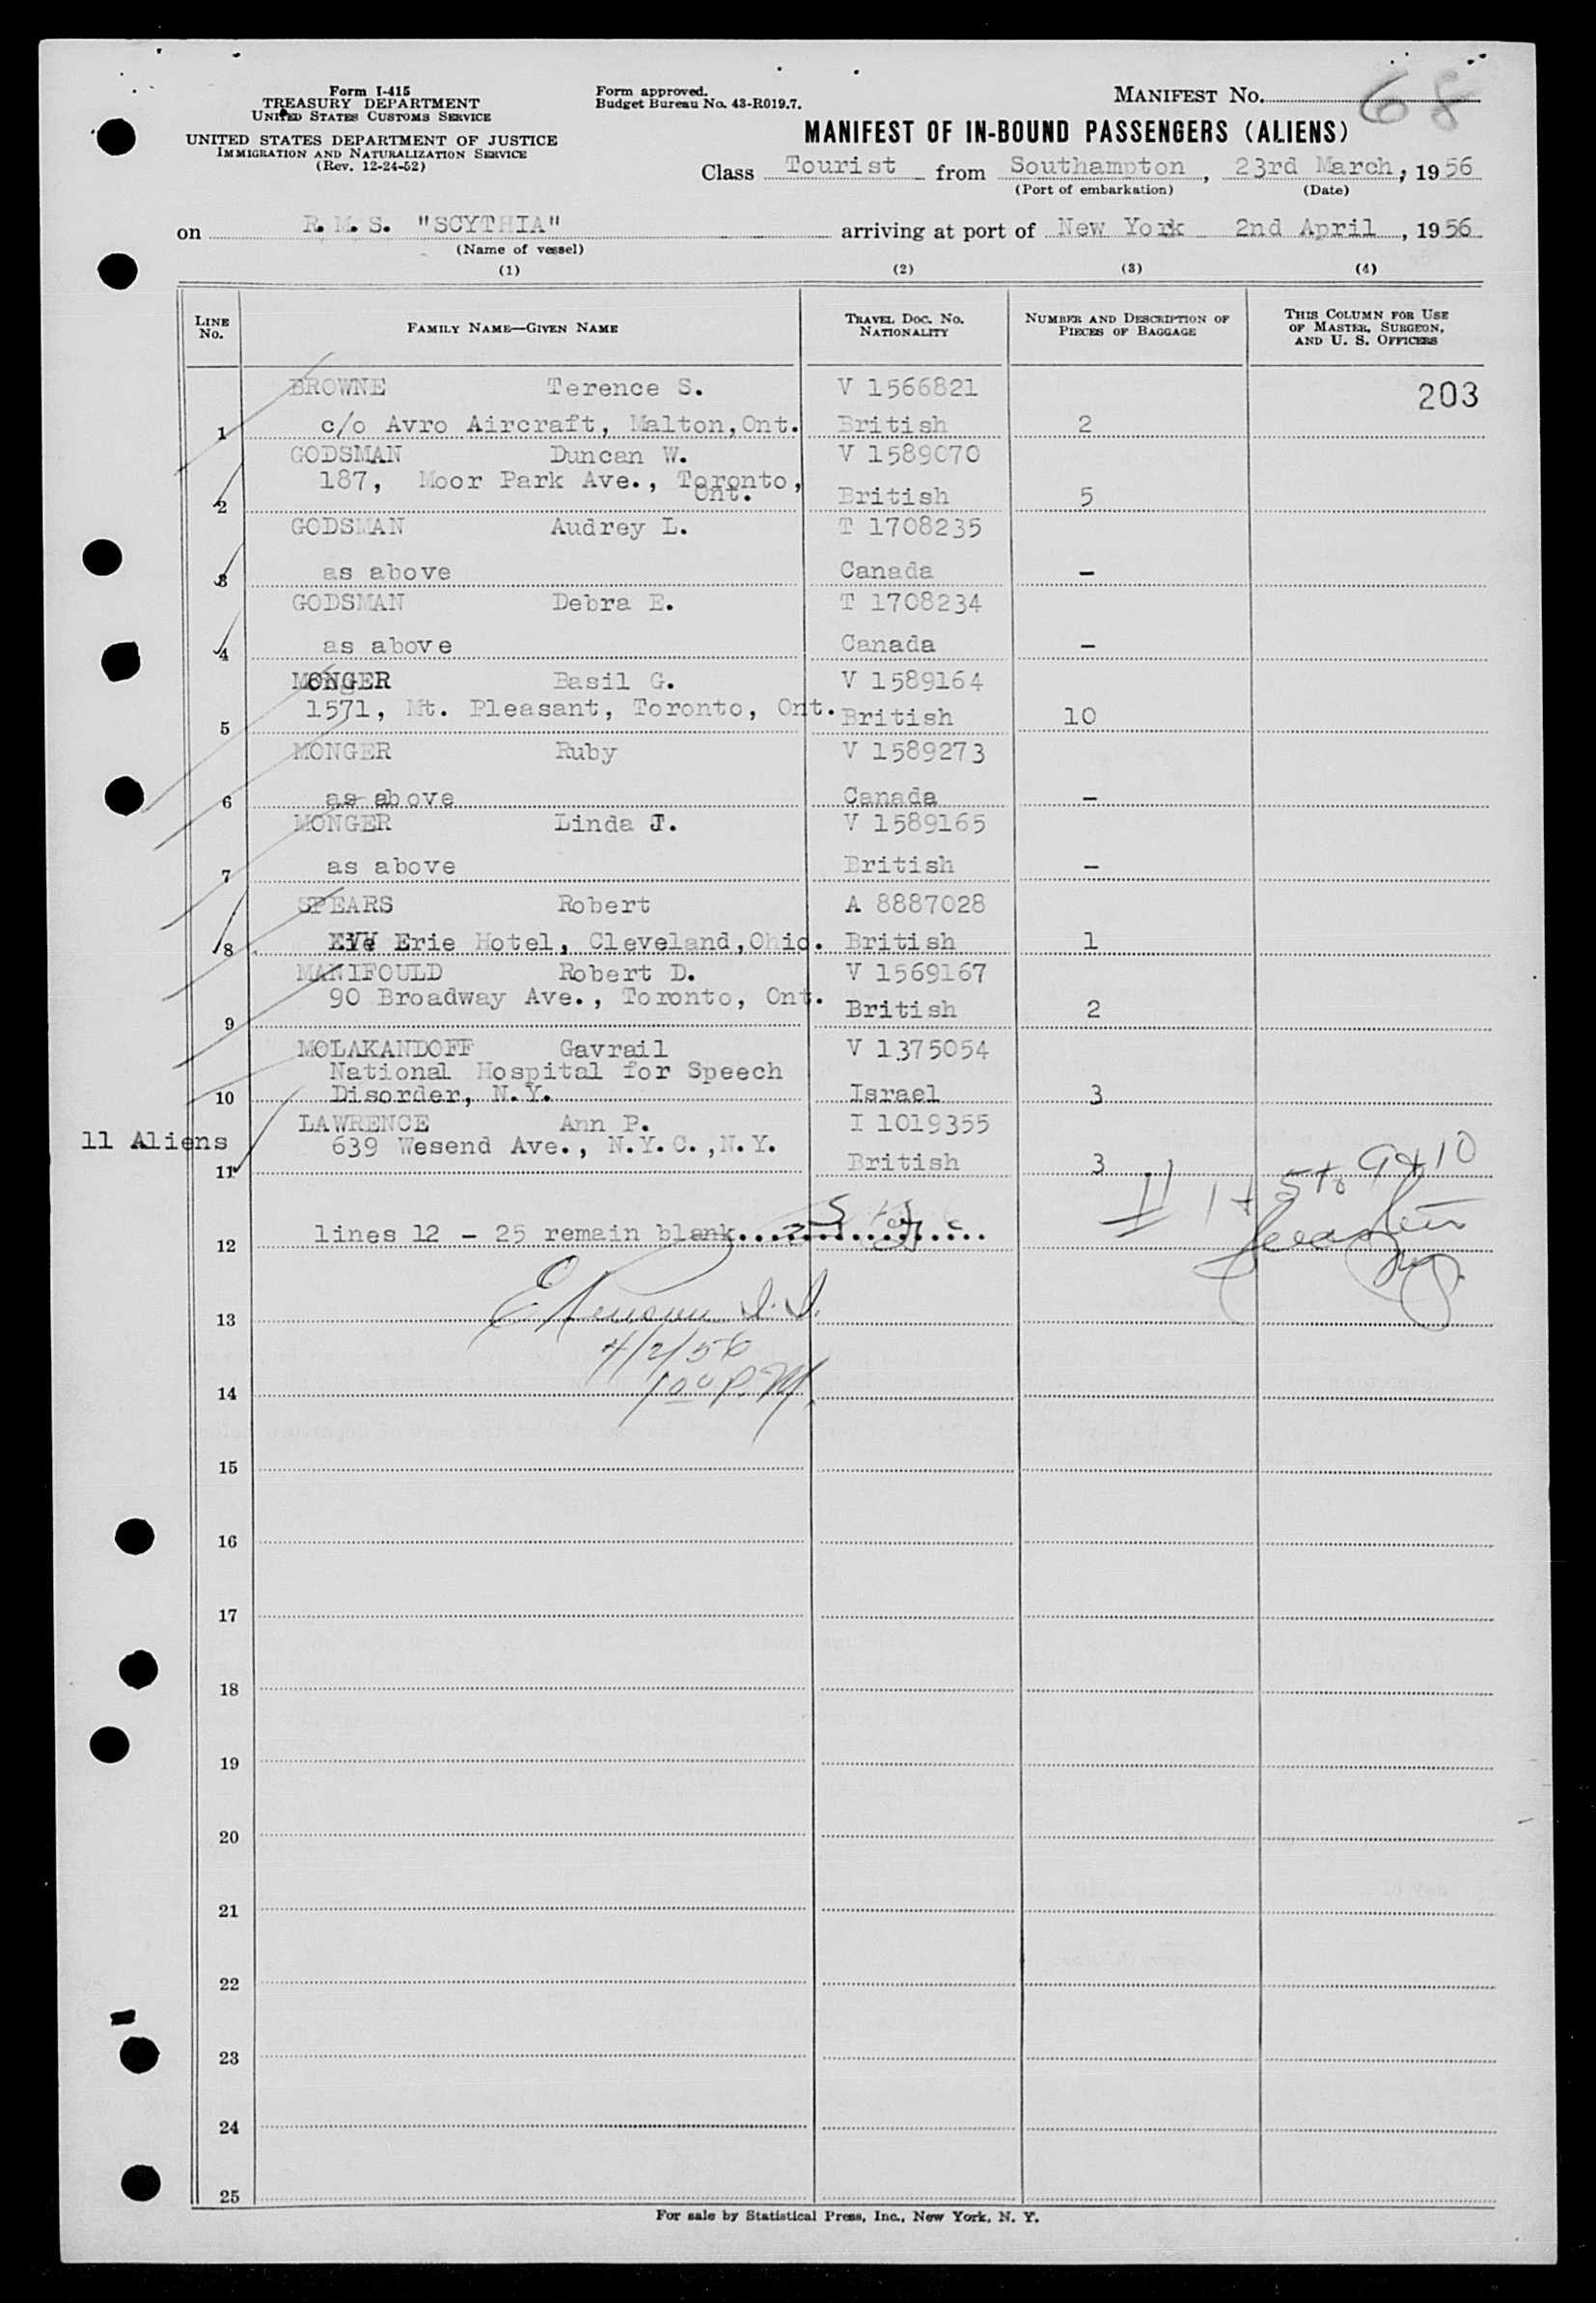 Form I-415
TREASURY DEPARTMENT
UNITED STATES CUSTOMS SERVICE
UNITED STATES DEPARTMENT OF JUSTICE
IMMIGRATION AND NATURALIZATION SERVICE
(Rev. 12-24-52)
Form approved.
Budget Bureau No. 43-R019.7.
MANIFEST No. 68
MANIFEST OF IN-BOUND PASSENGERS (ALIENS)
Class Tourist from Southampton, 23rd March, 1956
(Port of embarkation) (Date)
on R.M.S. "SCYTHIA" arriving at port of New York 2nd April, 1956
(Name of vessel)
(1) (2) (3) (4)
LINE No. FAMILY NAME—GIVEN NAME TRAVEL DOC. NO. NATIONALITY NUMBER AND DESCRIPTION OF PIECES OF BAGGAGE THIS COLUMN FOR USE OF MASTER, SURGEON, AND U. S. OFFICERS
BROWNE Terence S. V 1566821 203
1 c/o Avro Aircraft, Malton,Ont. British 2
GODSMAN Duncan W. V 1589070
187, Moor Park Ave., Toronto,
2 Ont. British 5
GODSMAN Audrey L. T 1708235
3 as above Canada –
GODSMAN Debra E. T 1708234
4 as above Canada –
MONGER Basil G. V 1589164
1571, Mt. Pleasant, Toronto, Ont.
5 British 10
MONGER Ruby V 1589273
6 as above Canada –
MONGER Linda J. V 1589165
7 as above British –
SPEARS Robert A 8887028
8 Erie Hotel, Cleveland,Ohio. British 1
MANIFOULD Robert D. V 1569167
90 Broadway Ave., Toronto, Ont.
9 British 2
MOLAKANDOFF Gavrail V 1375054
National Hospital for Speech
10 Disorder, N.Y. Israel 3
LAWRENCE Ann P. I 1019355
11 Aliens 639 Wesend Ave., N.Y.C.,N.Y.
11 British 3
11 1 + 5 to 9 + 10
12 lines 12 – 25 remain blank..................
13
4/2/56
14 1 00 P.M.
15
16
17
18
19
20
21
22
23
24
25
For sale by Statistical Press, Inc., New York, N. Y.